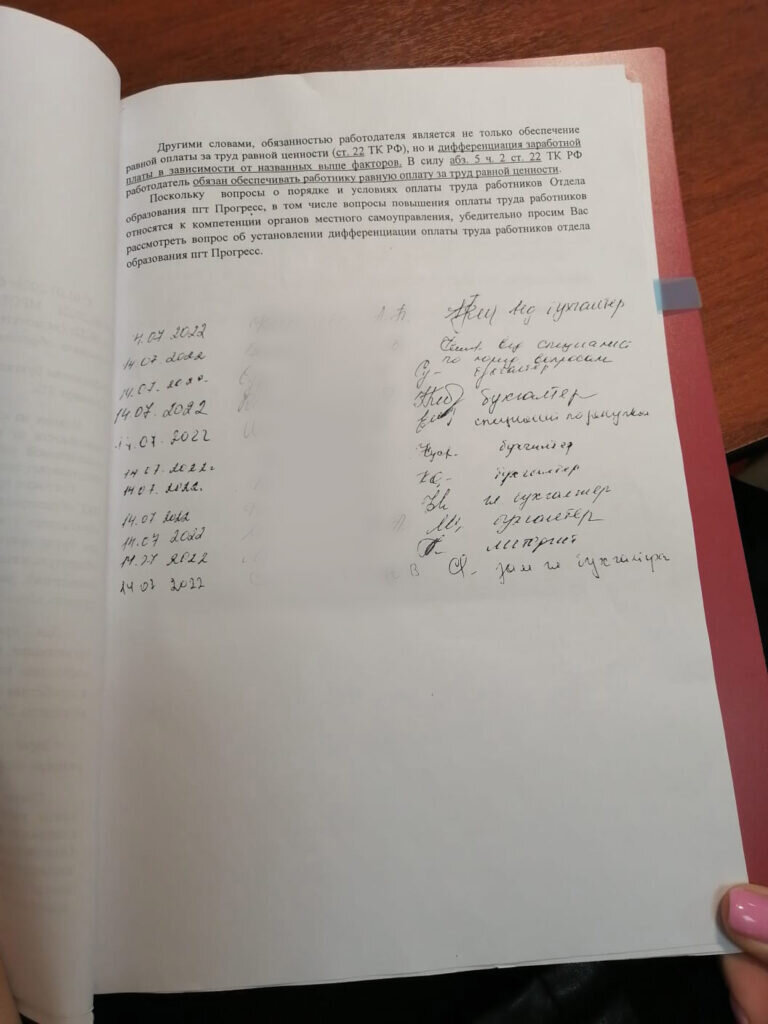 Другими словами, обязанностью работодателя является не только обеспечение
равной оплаты за труд равной ценности (ст. 22 ТК РФ), но и дифференциация заработной
платы в зависимости от названных выше факторов. В силу абз. 5 ч. 2 ст. 22 ТК РФ
работодатель обязан обеспечивать работнику равную оплату за труд равной ценности.
Поскольку вопросы о порядке и условиях оплаты труда работников Отдела
образования пгт Прогресс, в том числе вопросы повышения оплаты труда работников
относятся к компетенции органов местного самоуправления, убедительно просим Вас
рассмотреть вопрос об установлении дифференциации оплаты труда работников отдела
образования пгт Прогресс.
4.07.2022 вед бухгалтер
14.07.2022 вед специалист
по вопросам
14.07.2022. бухгалтер
14.07.2022 бухгалтер
14.07.2022 специалист по закупкам
14.07.2022г бухгалтер
14.07.2022. бухгалтер
14.07.2022 гл бухгалтер
14.07 2022 бухгалтер
2022
14 07 2022 В зам гл бухгалтера